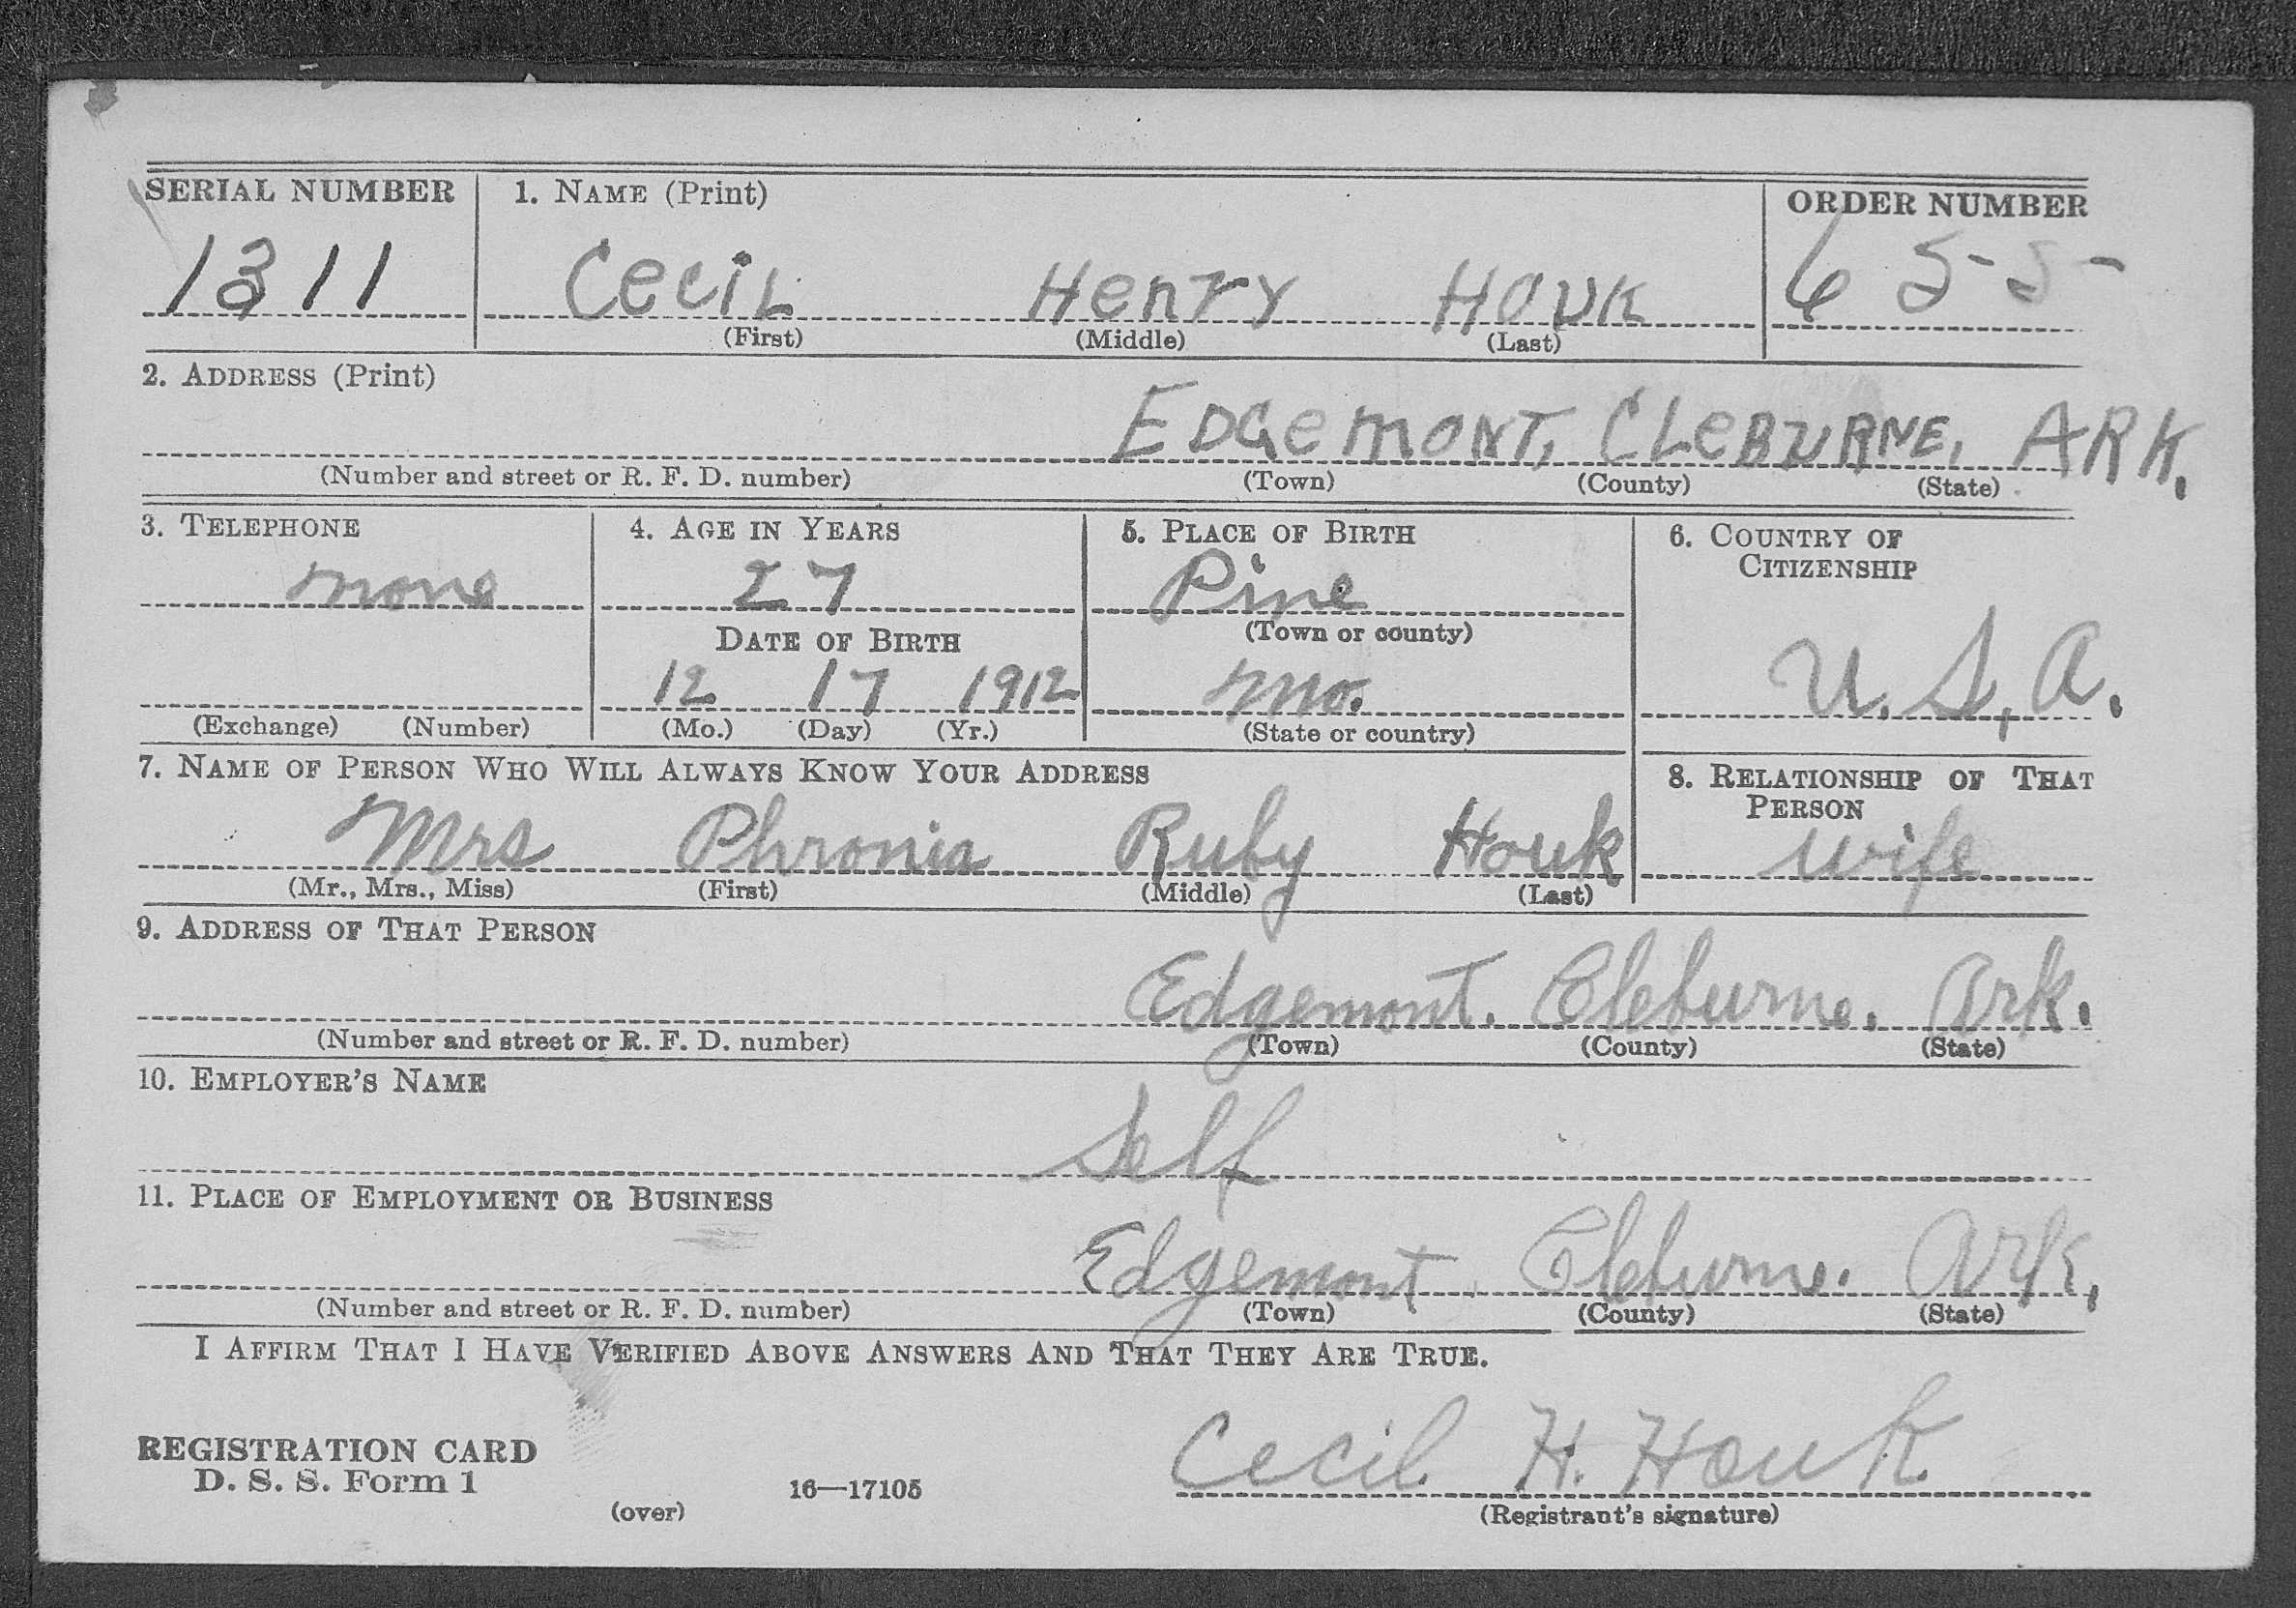 SERIAL NUMBER 1. NAME (Print) ORDER NUMBER
1311 CECIL HENRY HOUK 655
(First) (Middle) (Last)
2. ADDRESS (Print)
EDGEMONT, CLEBURNE, ARK.
(Number and street or R. F. D. number) (Town) (County) (State)
3. TELEPHONE 4. AGE IN YEARS 5. PLACE OF BIRTH 6. COUNTRY OF
CITIZENSHIP
none 27 Pine
DATE OF BIRTH (Town or county)
12 17 1912 Mo. U.S.A.
(Exchange) (Number) (Mo.) (Day) (Yr.) (State or country)
7. NAME OF PERSON WHO WILL ALWAYS KNOW YOUR ADDRESS 8. RELATIONSHIP OF THAT
PERSON
Mrs Phronia Ruby Houk wife
(Mr., Mrs., Miss) (First) (Middle) (Last)
9. ADDRESS OF THAT PERSON
Edgemont. Cleburne. Ark.
(Number and street or R. F. D. number) (Town) (County) (State)
10. EMPLOYER'S NAME
Self
11. PLACE OF EMPLOYMENT OR BUSINESS
Edgemont Cleburne. Ark.
(Number and street or R. F. D. number) (Town) (County) (State)
I AFFIRM THAT I HAVE VERIFIED ABOVE ANSWERS AND THAT THEY ARE TRUE.
REGISTRATION CARD Cecil H. Houk
D. S. S. Form 1 16—17105
(over) (Registrant's signature)